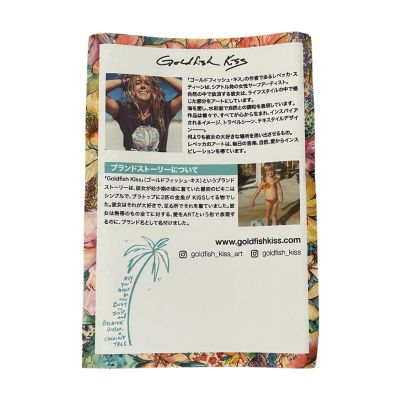 Goldfish Kiss
「ゴールドフィッシュ・キス」の作者であるレベッカ・ス
ティーンは、シアトル発の女性サーフアーティスト。
自然の中で放浪する彼女は、ライフスタイルの中で感
じた部分をアートにしています。
海を愛し、水彩画で自然との調和を表現しています。
作品は様々で、すべてが心から生まれ、インスパイア
されるイメージ、トラベルシーン、テキスタイルデザイ
ン———。
何よりも彼女の大好きな場所を思い出させるもの。
レベッカのアートは、毎日の音楽、自然、愛からインス
ピレーションを得ています。
ブランドストーリーについて
「Goldfish Kiss」（ゴールドフィッシュ・キス）というブランド
ストーリーは、彼女が幼少期の頃に着ていた最初のビキニは
シンプルで、ブラトップに2匹の金魚が KISSしてる物でし
た。彼女はそれが大好きで、至る所でそれを着ていました。彼
女は熱帯のもの全てに対する、愛をARTという形で表現す
るのに、ブランド名として名付けました。
www.goldfishkiss.com
goldfish_kiss_art
goldfish_kiss
MAY
YOU
NEVER BE
TOO
BUSY
TO
STOP
AND
BREATHE
UNDER
A
COCONUT
TREE.